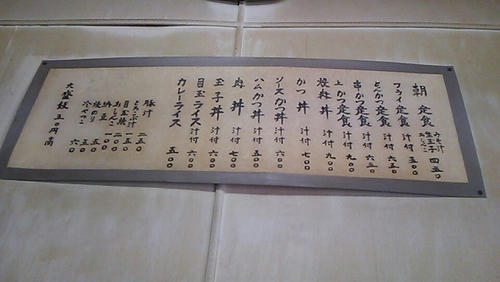 朝定食 みそ汁 生玉子 おしんこ 四五〇
フライ定食 汁付 五〇〇
とんかつ定食 汁付 六三〇
串かつ定食 汁付 六五〇
上かつ定食 汁付 九〇〇
焼森丼 汁付 九〇〇
かつ丼 汁付 六五〇
ソースかつ丼 汁付 六〇〇
ハムかつ丼 汁付 五〇〇
肉丼 汁付 七〇〇
玉子丼 汁付 五〇〇
目玉ライス 汁付 六〇〇
カレーライス 五〇〇
豚汁 二五〇
とうふ汁 二五〇
目玉焼 二五〇
おしんこ 二〇〇
納豆 一〇〇
焼のり 五〇
冷やっこ 一五〇
大盛飯 五〇円高